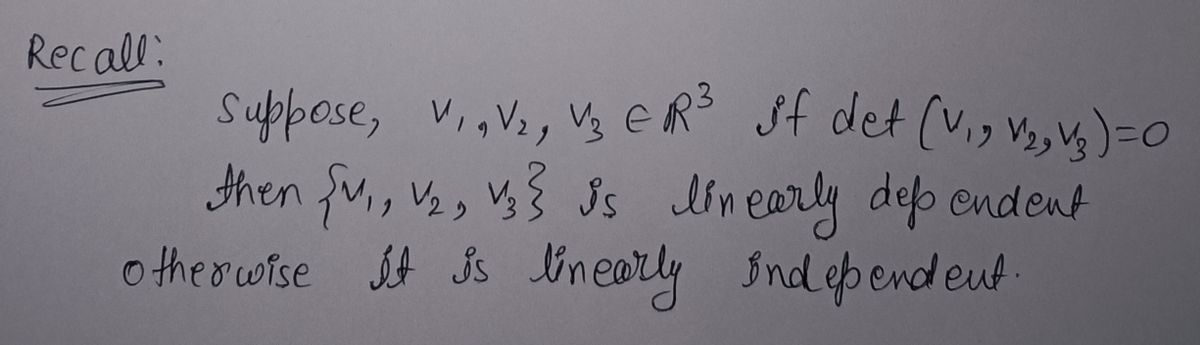 Recall:
Suppose, v₁, v₂, v₃ ∈ ℝ³ if det (v₁, v₂, v₃)=0
then {v₁, v₂, v₃} is linearly dependent
otherwise it is linearly independent.